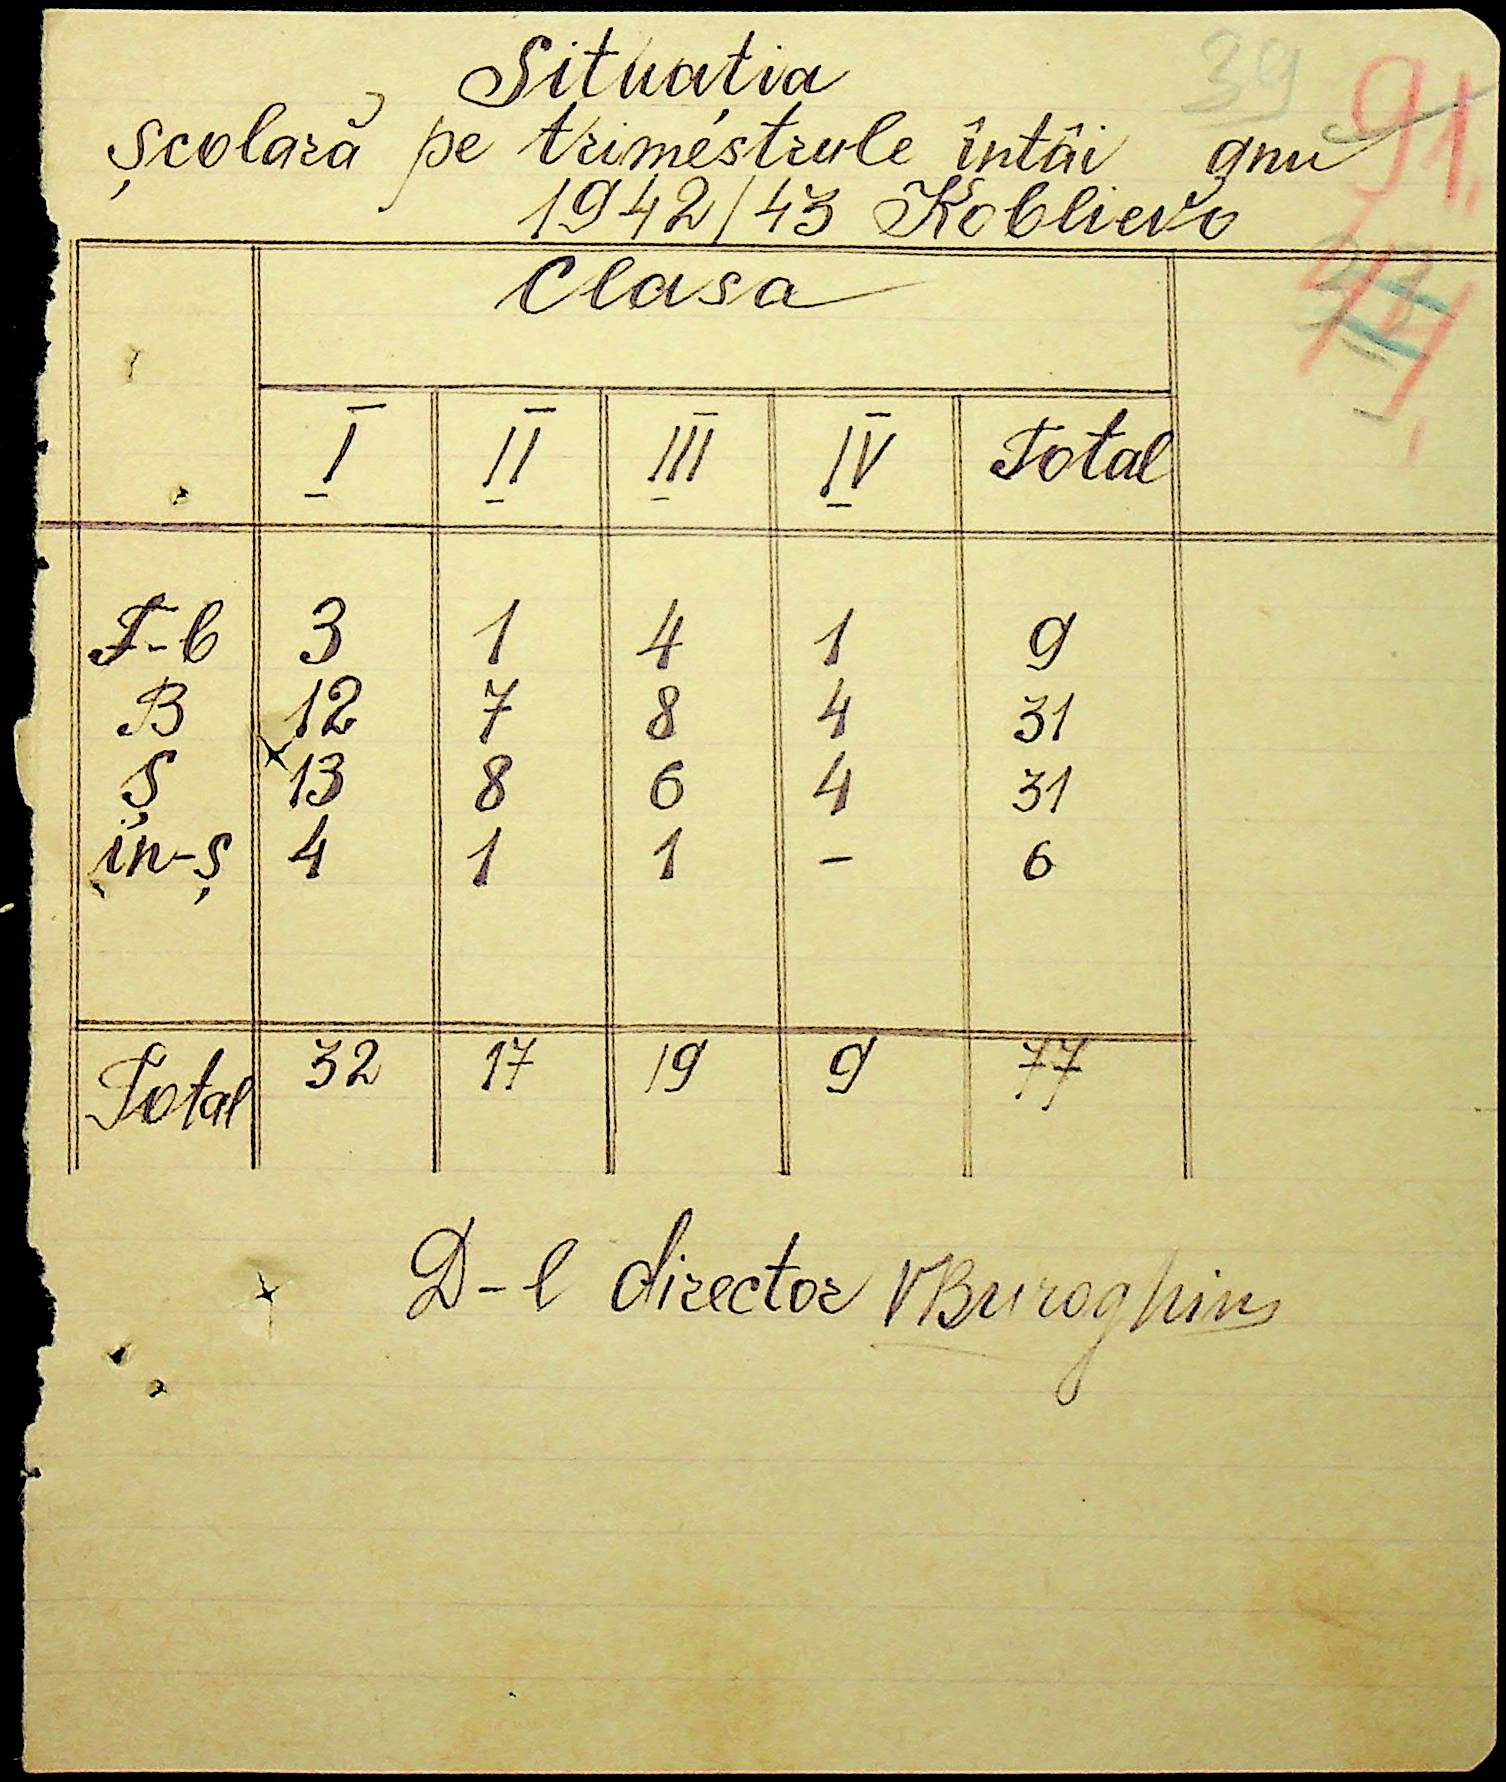 Situatia
școlară pe trimestrule întâi gnu
1942/43 Koblievo
39
91.
Clasa
I II III IV Total
F-b 3 1 4 1 9
B 12 7 8 4 31
Ș 13 8 6 4 31
in-ș 4 1 1 - 6
Total 32 17 19 9 77
D-l director